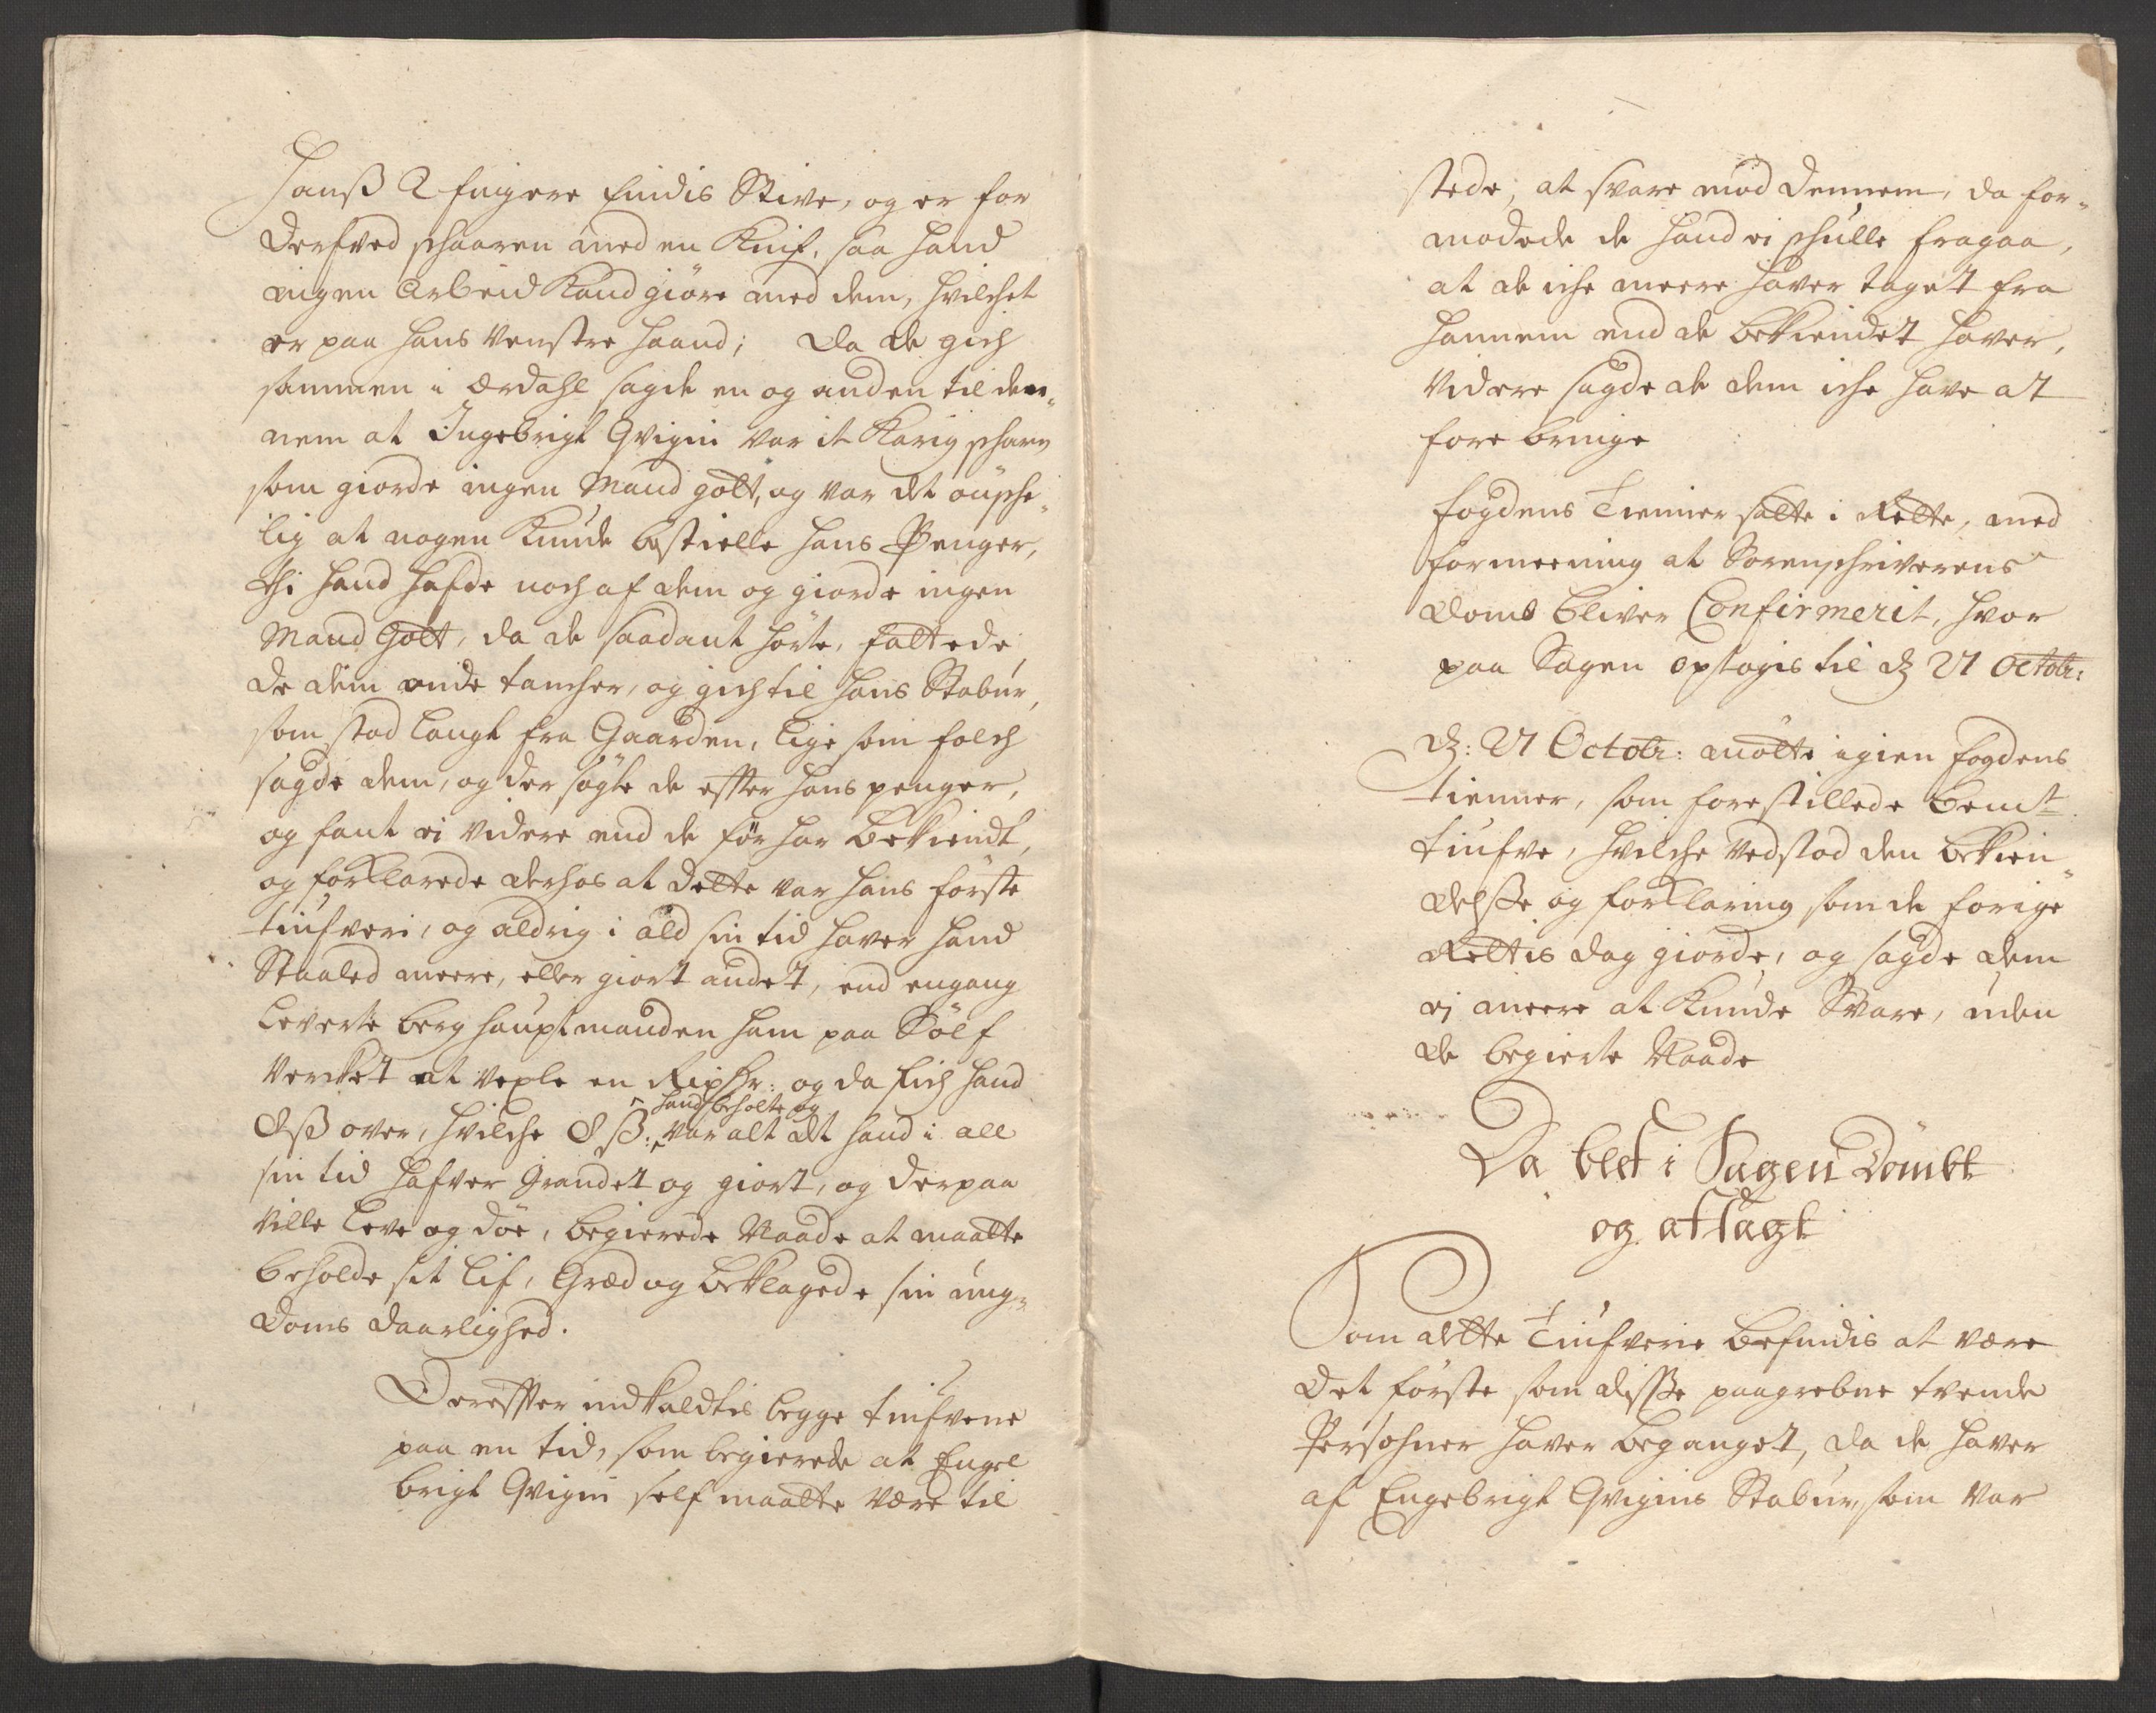 Hanß 2 fingere findis Stive, og er for
derfved schaaren med en Knif, saa hand
ingen Arbeid Kand giøre med dem, hvilchet
er paa hans venstre haand; da de gich
sammen i Ørdahl sagde en og anden til den„
nem at Ingebrigt Qvigni var it Karig scharn
som giorde ingen Mand gott, og var det
lig at nogen Kunde bestielle hans Penger,
thi hand hafde noch af dem og giorde ingen
Mand Gott, da de saadant hørte, fattede
de dem onde tancher, og gich til hans Stabur,
som stod langt fra Gaarden, lige som folch
sagde dem, og der søgte de effter hans penger,
og fant ei videre end de før har bekiendt,
og forklarede derhos at dette var hans første
tiufveri, og aldrig i ald sin tid haver hand
Staaled meere, eller giort andet, end engang
leverte berghauptmanden ham paa Sølf
Verchet at vexle en Rixdr: og da fich hand
8 ß over, hvilche 8 ß: hand beholte og var alt det hand i all
sin tid hafver Grandet og giort, og derpaa
ville leve og døe, begierede Naade at maatte
beholde sit lif, Græd og beklagede sin ung„
doms daarlighed.
Dereffter indkaldtis begge tiufvene
paa en tid, som begierede at Engel
brigt Qvigni self maatte være til
stede, at svare mod dennem, da for„
modede de hand ei schulle fragaa,
at de iche meere haver taget fra
hannem end de bekiendet haver,
videre sagde de dem iche have at
fore bringe
fogdens Tienner satte i Rette, med
formeening at Sorenschriverens
domb bliver Confirmerit, hvor
paa Sagen optagis til d 21 Octobr:
d: 21 Octobr: møtte igien fogdens
tienner, som forestillede bemte
tiufve, hvilche vedstod den bekien„
delsse og forklaring som de forige
Rettis dag giorde, og sagde dem
ej meere at Kunde Svare, uden
de begierte Naade
Da blef i Sagen Dømbt
og afsagt
Som dette Tiufverie befindis at være
det første som disse paagrebne tvende
Persohner haver beganget, da de haver
af Engebrigt Qvignis Stabur, som var